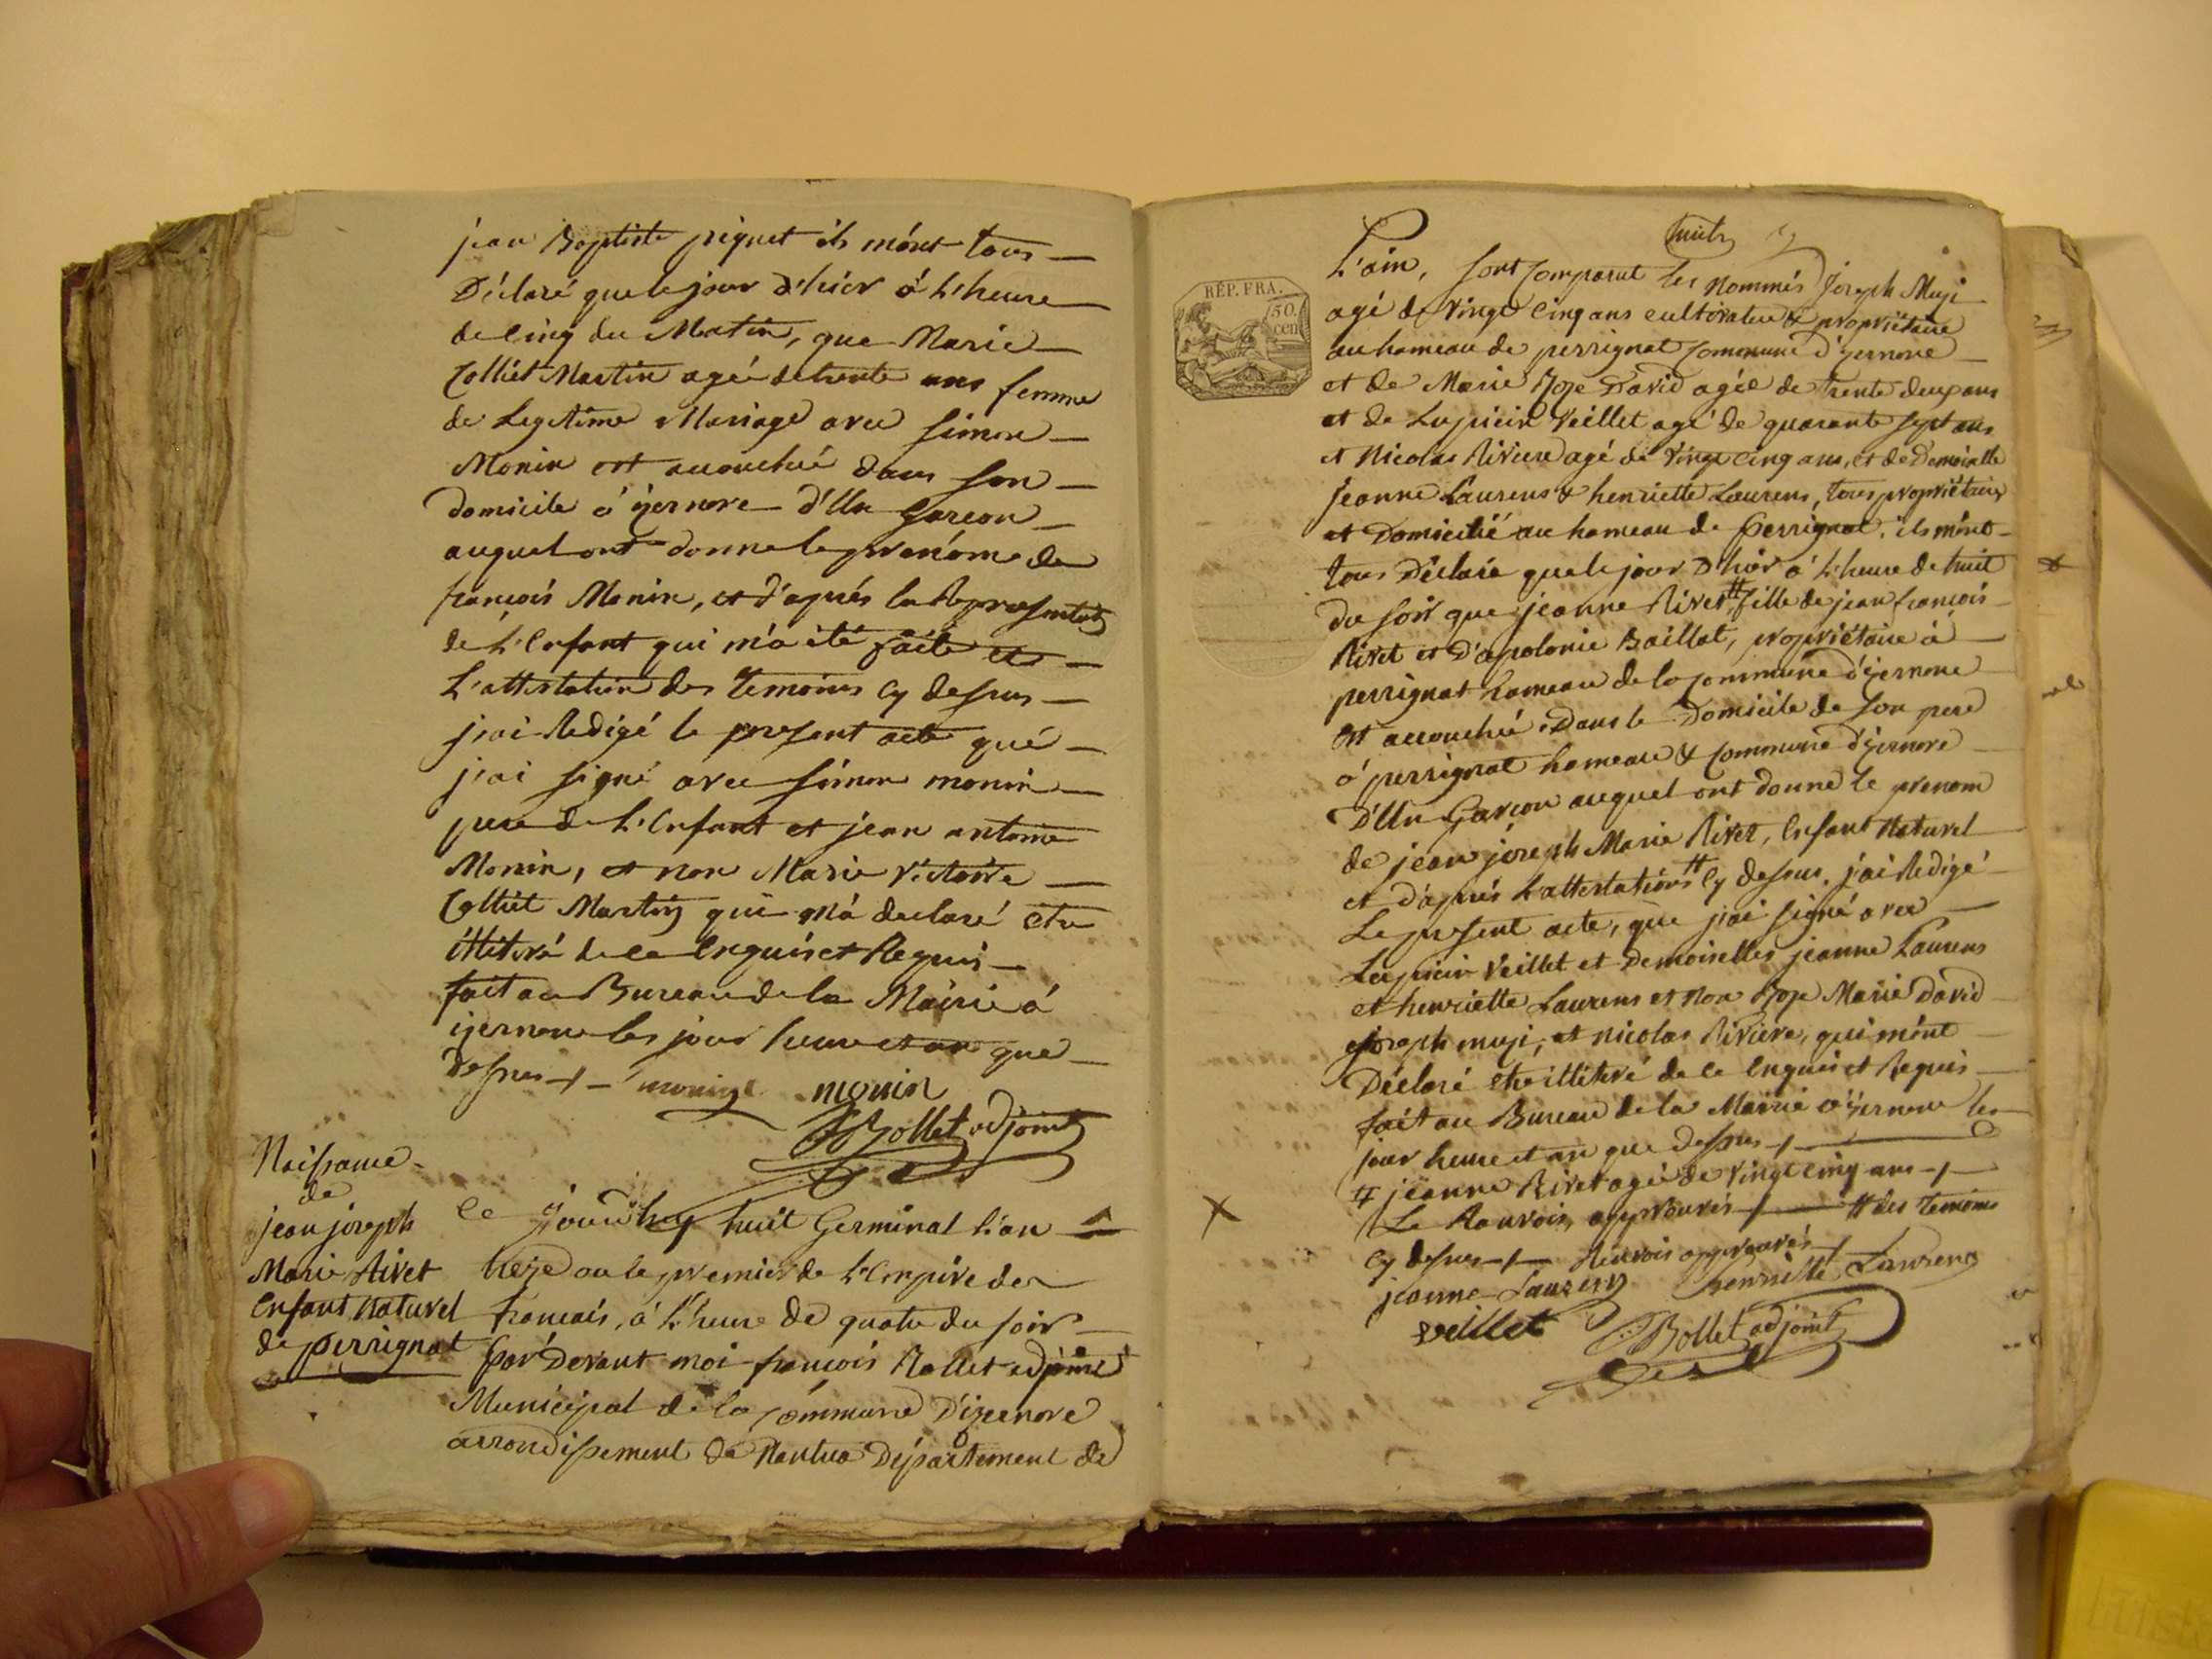 jean Baptiste piquet ils mónt tous
Déclaré que le jour d'hier á L'heure
de Cinq du Matin, que Marie
Colliet Martin agée de trente ans femme
de Legitime Mariage avec Simon
Monin est accouchée dans son
domicile á izernore d'Un Garçon
auquel ont donné le prenóme de
françois Monin, et d'après la Representation
de L'Enfant qui m'a été faite et
L'attestation des Temoins Cy dessus
j'ai Redigé le present acte que
j'ai signé avec Simon monin
pere de L'Enfant et jean antoine
Monin, et non Marie Victoire
Colliet Martin qui m'á declaré etre
illiteré de ce Enquis et Requis
fait au Bureau de la Mairie á
izernore les jour heure et an que
dessus monin monin
Bollet adjoint
Naissance
de
jean joseph
Marie Rivet
Enfant Naturel
de perrignat
Ce jourd'huy huit Germinal L'an
treze ou le premier de L'Empire des
francais, à L'heure de quatre du soir
par Devant moi françois Bollet adjoint
Municipal de la Commune D'izernore
arrondissement de Nantua Département de
huit
RÉP. FRA.
50.
cen
L'ain, sont Comparut les nommés Joseph Muji
agé de Vingt Cinq ans cultivateur & propriétaire
au hameau de perrignat Commune d'izernore
et de Marie Roze David agée de Trente deux ans
et de Lupicin Veillet agé de quarante sept ans
et Nicolas Riviere agé de Vingt cinq ans, et de Demoiselle
jeanne Laurens & henriette Laurens, tous propriétaires
et Domicilié au hameau de perrignat. ils mónt
tous Déclaré que le jour D'hier á L'heure de huit
du soir que jeanne Rivet # fille de jean françois
Rivet et D'apolonie Baillat, propriétaire à
perrignat hameau de la Commune d'izernore
est accouchée Dans le Domicile de son pere
á perrignat hameau & Commune d'izernore
D'Un Garçon auquel ont donné le prenom
de jean joseph Marie Rivet, Enfant Naturel
et d'après L'attestation # Cy dessus, j'ai Redigé
Le present acte, que j'ai signé avec
Lupicin Veillet et Demoiselles jeanne Laurens
et henriette Laurens et non Roze Marie David
joseph muji, et nicolas Riviere, qui mónt
Déclaré etre illiteré de ce Enquis et Requis
fait au Bureau de la Mairie á izernore les
jour heure et an que dessus
# jeanne Rivet agée de Vingt cinq ans
Le Ranvois approuvés # des temoins
Cy dessus Renvois approuvés
jeanne Laurens henriette Laurens
veillet Bollet adjoint